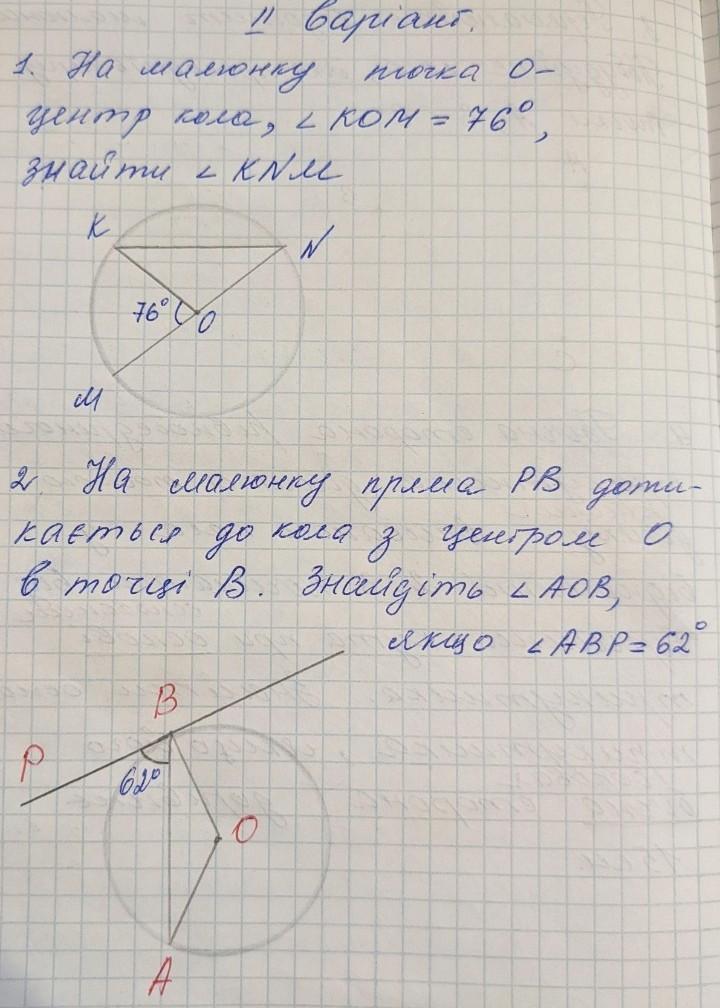 II Варіант.
1. На малюнку точка О-
центр кола, ∠KOM = 76°,
знайти ∠KNM
K
N
76°
O
M
2. На малюнку пряма PB доти-
кається до кола з центром О
в точці B. Знайдіть ∠AOB,
якщо ∠ABP = 62°
B
P
62°
O
A